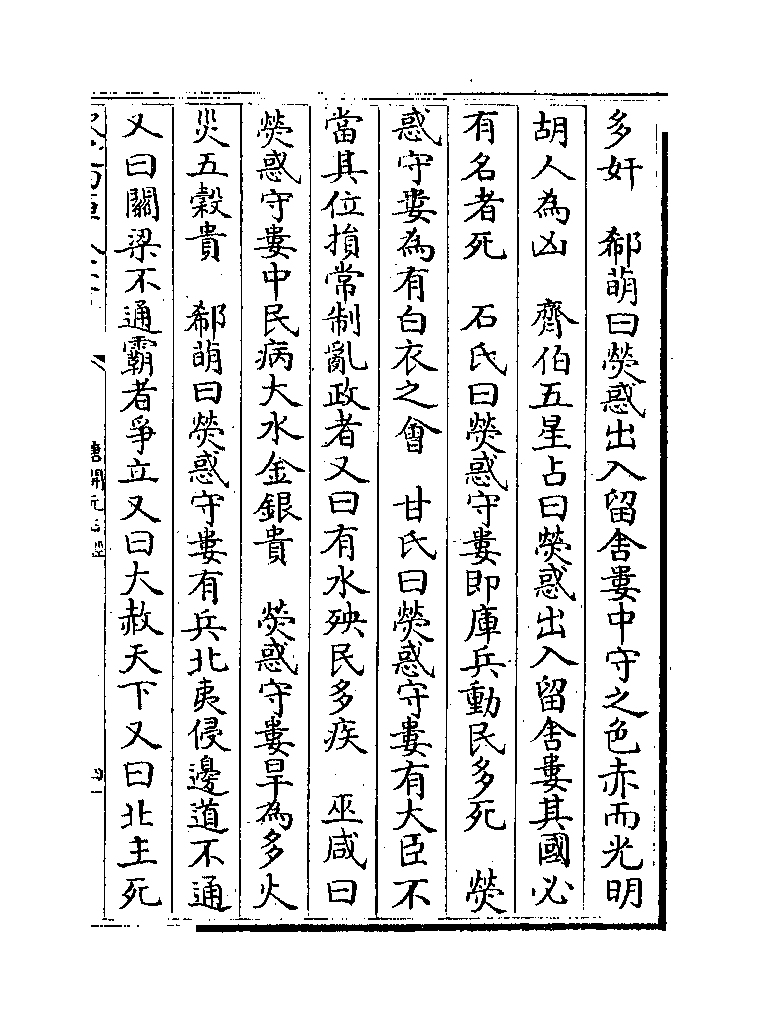 多奸　郗萌曰熒惑出入留舍婁中守之色赤而光明
胡人為凶　齊伯五星占曰熒惑出入留舍婁其國必
有名者死　石氏曰熒惑守婁即庫兵動民多死　熒
惑守婁為有白衣之會　甘氏曰熒惑守婁有大臣不
當其位損常制亂政者又曰有水殃民多疾　巫咸曰
熒惑守婁中民病大水金銀貴　熒惑守婁旱為多火
災五穀貴　郗萌曰熒惑守婁有兵北夷侵邊道不通
又曰關梁不通霸者爭立又曰大赦天下又曰北主死
唐開元占經